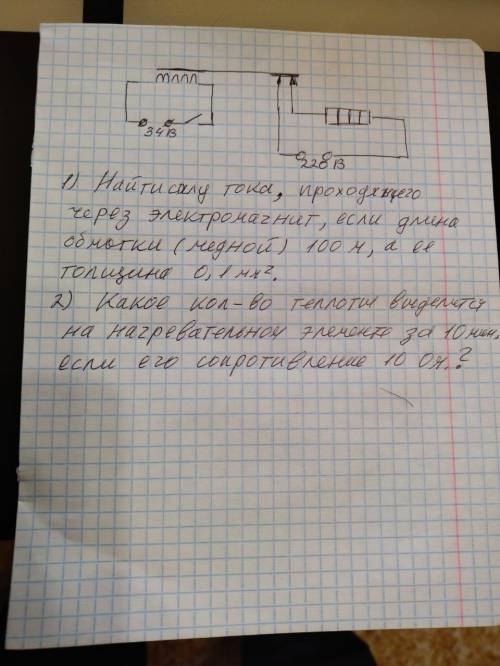 34 В
220 В
1) Найти силу тока, проходящего
через электромагнит, если длина
обмотки (медной) 100 м, а ее
толщина 0,1 мм².
2) Какое кол-во теплоты выделится
на нагревательном элементе за 10 мин.
если его сопротивление 10 Ом.?